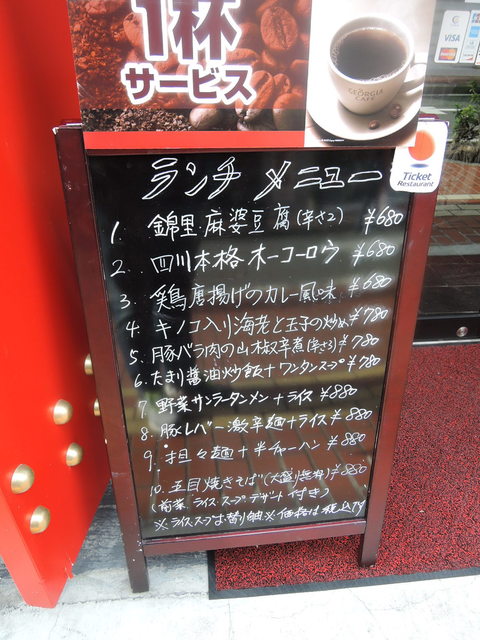 1杯
サービス
GEORGIA
CAFÉ
VISA
Ticket
Restaurant
ランチ メニュー
1. 錦里麻婆豆腐(辛さ2) ¥680
2. 四川本格ホーコーロウ ¥680
3. 鶏唐揚げのカレー風味 ¥680
4 キノコ入り海老と玉子の炒め ¥780
5. 豚バラ肉の山椒辛煮(辛さ3) ¥780
6. たまり醤油炒飯+ワンタンスープ ¥780
7 野菜サンラータンメン+ライス ¥880
8. 豚レバー激辛麺+ライス ¥880
9. 担々麺+半チャーハン ¥880
10. 五目焼きそば(大盛り無料) ¥880
(前菜 ライス スープ デザート 付き)
※ライス スープお替り自由 ※価格は税込です